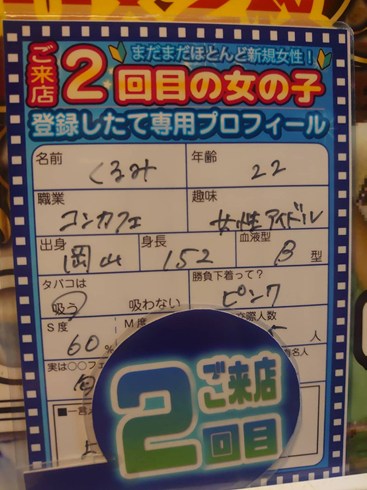 まだまだほとんど新規女性!
ご来店2回目の女の子
登録したて専用プロフィール
名前 くるみ 年齢 22
職業 コンカフェ 趣味 女性アイドル
出身 岡山 身長 152 血液型 B 型
タバコは 吸う 吸わない 勝負下着って? ピンク
S度 60% M度 交際人数 人
実は○○フェ
■一言
ご来店
2回目